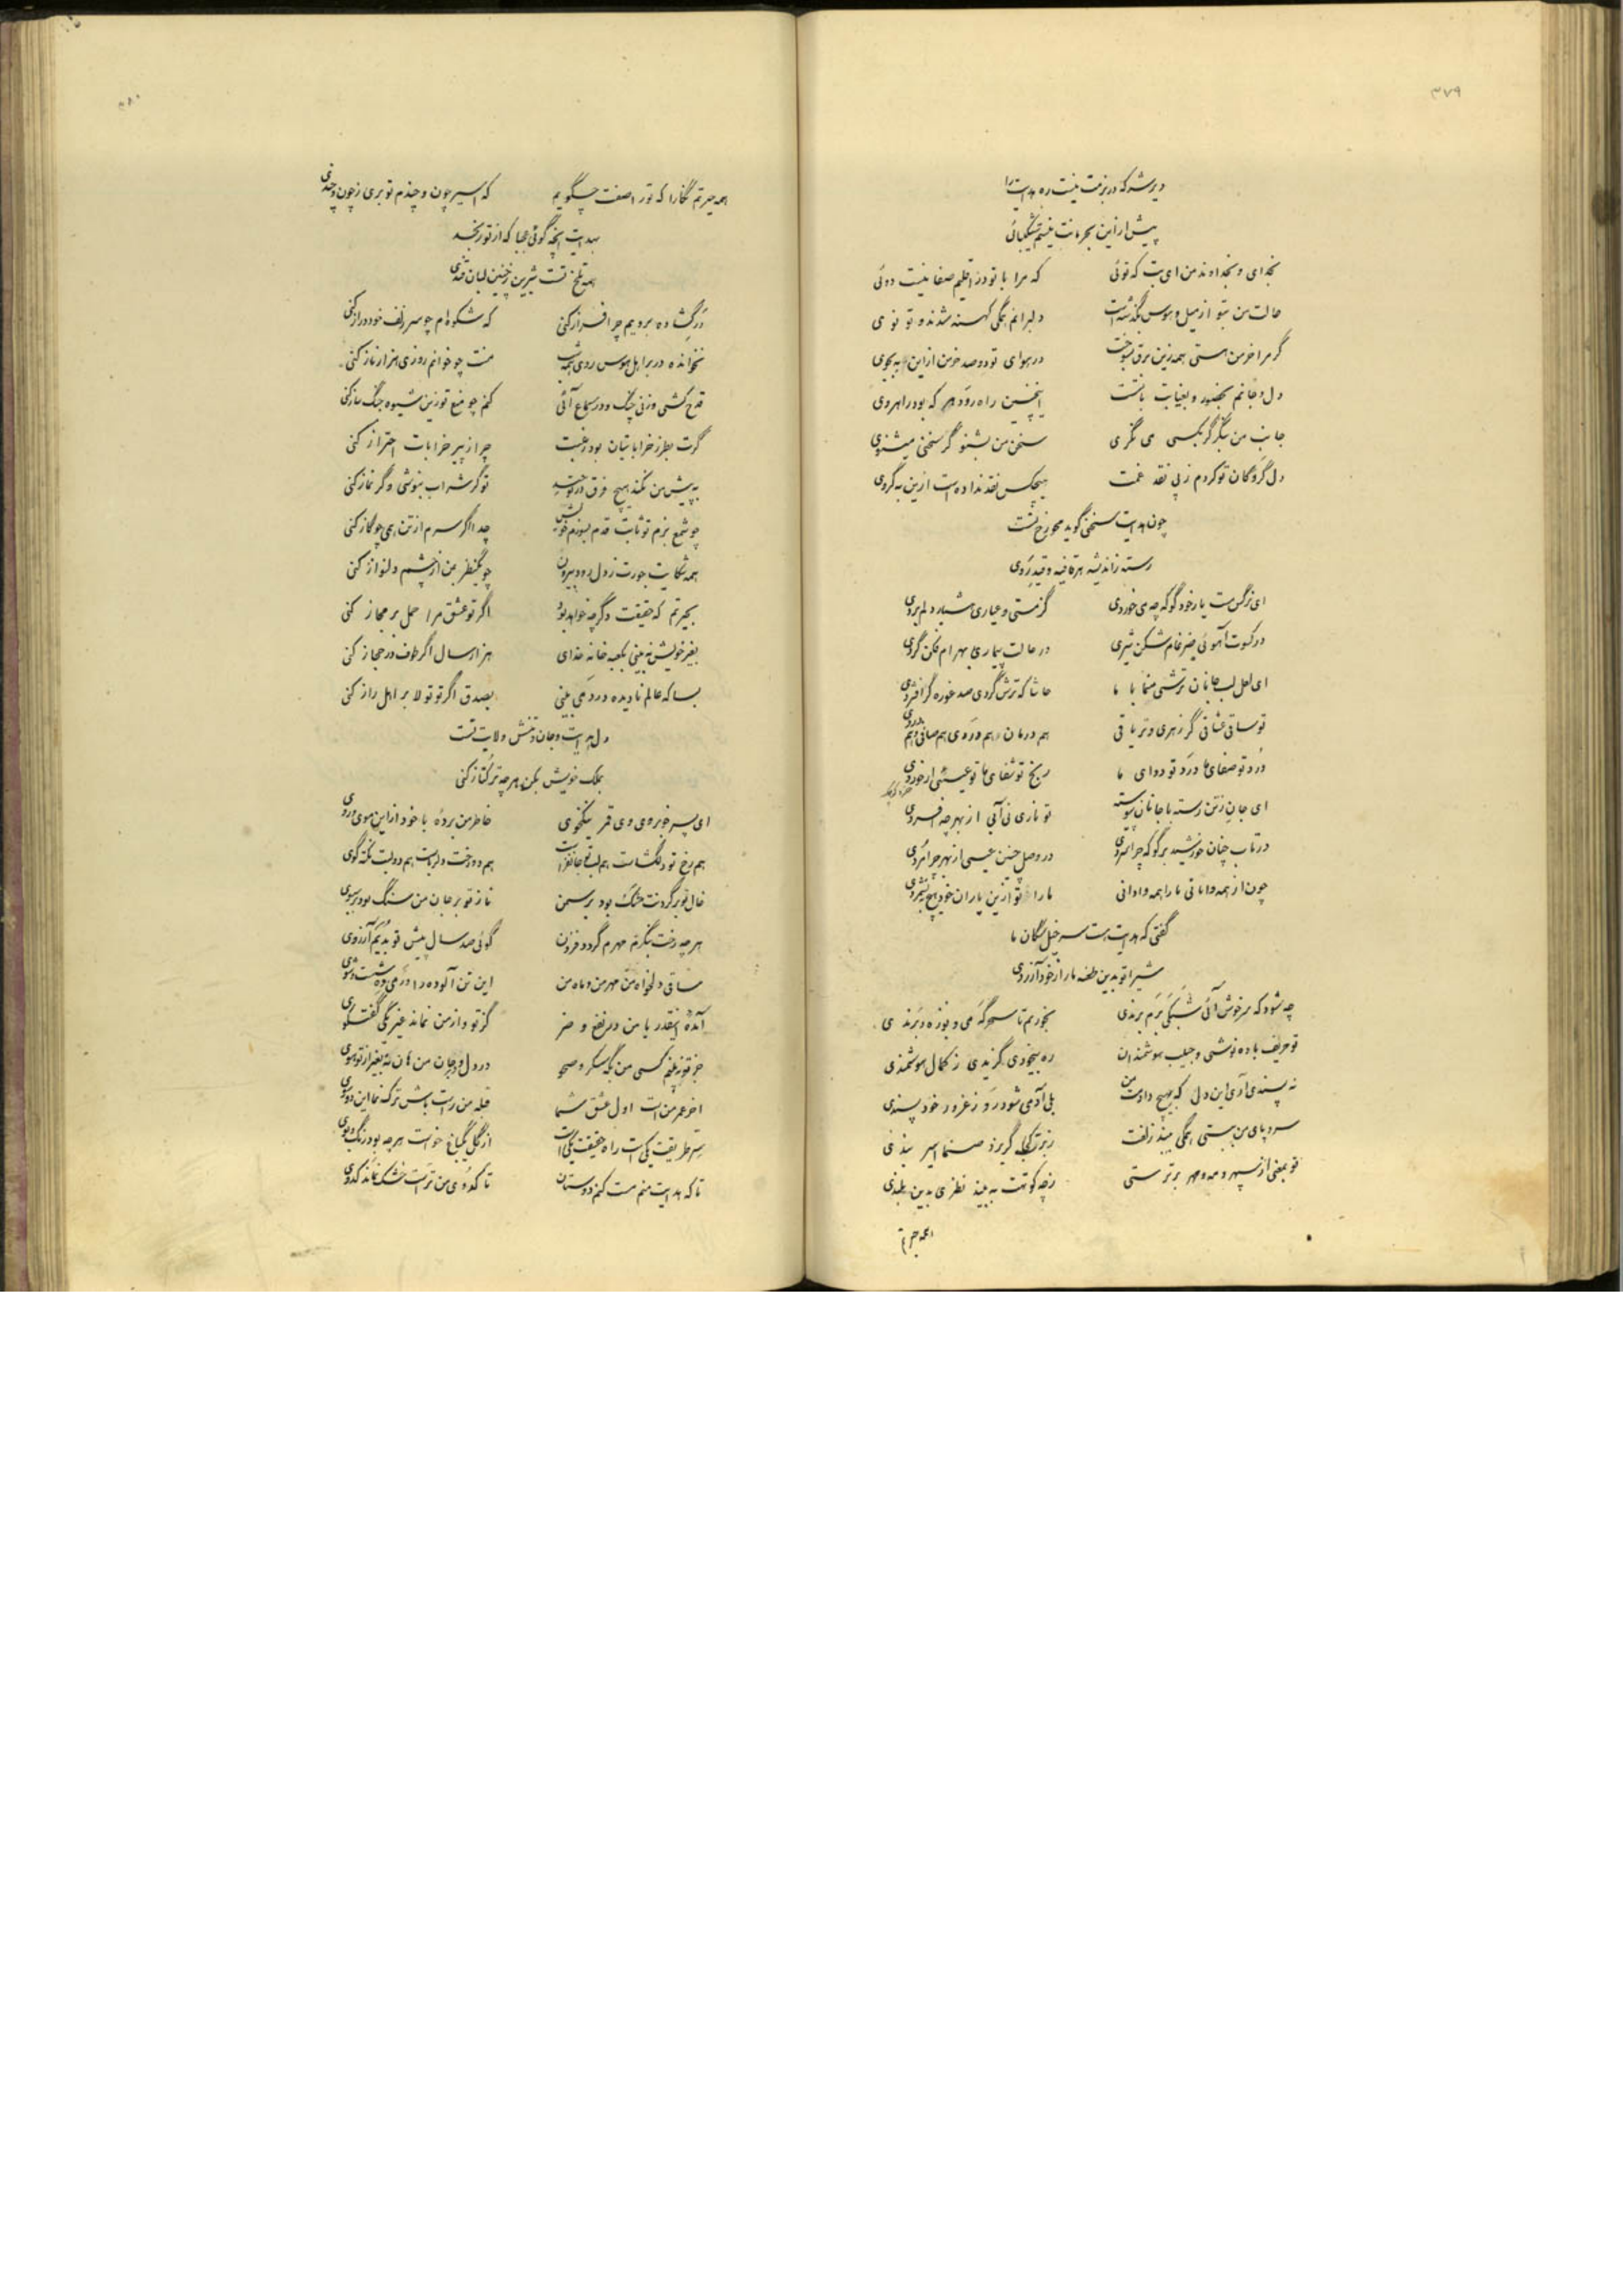 ۳۷۹
دیر شد که در بزمت نیست ره هدایت را
پیش ازین بحرمانت نیستم شکیبائی
بخدای و بخداوند من ای بت که توئی که مرا با تو در اقلیم صفا نیست دوئی
حالت من بتو از میل و هوس بگذشته است دلبرانم همگی کهنه شدند و تو نوی
گر مرا خرمن هستی همه زین برق بسوخت در هوای تو دو صد خرمن ازاین به بجوی
دل و جانم بحضور و بغیابت با تست اینچنین راه رود هر که بود راهروی
جانب من بنگر گر بکسی می نگری سخن من بشنو گر سخنی میشنوی
دل گروگان تو کردم ز پی نقد غمت هیچکس نقد نداده است ازین به گروی
چون هدایت سخنی گوید محو رخ تست
رسته ز اندیشه هر قافیه و قید روی
ای نرگس مست یار خود گو که چه می خوردی کز مستی و عیاری هشیار دلم بردی
در کسوت آهوئی ضرغام شکن شیری در حالت بیماری بهرام فکن گردی
ای لعل لب جانان ترشی منما با ما حاشا که ترش گردی صد غوره گر افشردی
تو ساقی عشاقی گر زهری و تریاقی هم درمان هم دردی هم صافی و هم دردی
درد تو صفای ما درد تو دوای ما رنج تو شفای ما تو عیسی
ای جان ز تن رسته با جانان پیوسته تو ناری نی آبی از بهر چه افسردی
در تاب چنان خورشید برگو که چرا در وصل چنین عیسی از بهر چرا مردی
چون از همه وامانی ما را همه وادانی ما را تو ازین یاران خود هیچ نشمردی
گفتی که هدایت هست سرخیل سگان ما
شیرا تو بدین طعنه ما را ز خود آزردی
چه شود که سرخوش آئی شبکی برم برندی بخوریم تا سحرگه می و بوزه
تو حریف باده نوشی و حبیب هوشمندان ره بیخودی گزیدی ز کمال هوشمندی
نه پسندی آری این دل که بهیچ دادمت من بلی آدمی شود رد ز غرور خود پسندی
سر و پای من ببستی همگی ببند زلفت ز برت کجا گریزد صنما اسیر بندی
تو بمعنی از سپهر و مه و مهر برترستی ز چه کوتهت به بیند نظری بدین بلندی
همه حیرتم
همه حیرتم نگارا که تو را صفت چگویم که اسیر چون و چندم تو بری ز چون و چندی
بهدایت آنچه گوئی عجبا که از تو رنجد
همه تلخ تست شیرین ز چنین لبان قندی
در گشاده برویم چرا فراز کنی که شکوه ام چو سر زلف خود دراز کنی
نخوانده در بر اهل هوس روی همه شب منت چو خوانم روزی هزار ناز کنی
قدح کشی و زنی چنگ و در سماع آئی کنم چو منع تو زین شیوه جنگ ساز کنی
گرت بطرز خراباتیان بود رغبت چرا ز پیر خرابات احتراز کنی
به پیش من نکند هیچ فرق در توحید تو گر شراب بنوشی و گر نماز کنی
چو شمع بزم تو ثابت قدم بسوزم خویش جدا اگر سرم از تن همی چو گاز کنی
همه شکایت جورت ز دل رود بیرون چو یکنظر بمن از چشم دلنواز کنی
بحیرتم که حقیقت دگر چه خواهد بود اگر تو عشق مرا حمل بر مجاز کنی
بغیر خویش نه بینی بکعبه خانه خدای هزار سال اگر طوف در حجاز کنی
بسا که عالم نادیده در دمی بینی بصدق اگر تو تولا بر اهل راز کنی
دل هدایت و جان و تنش ولایت تست
بملک خویش بکن هر چه ترکتاز کنی
ای پسر خوبروی وی قمر نیکخوی خاطر من برده با خود ازاین سوی
هم رخ تو دلگشاست هم لب تو جانفزاست هم دو رخت دلرباست هم دو لبت نکته گوی
خال تو بر گردنت خشک بود بر سمن ناز تو بر جان من سنگ بود بر سبوی
هر چه رخت بنگرم مهرم گردد فزون گوئی صد سال پیش تو بدیم آرزوی
ساقی دلخواه من مهر من و ماه من این تن آلوده را در می ده شست و شوی
آمده اینقدر یا من در نفع و ضر کز تو و از من نماند غیر یکی گفتگوی
جز تو نه بینم کسی من بگه سکر و صحو در دل و در جان من هان نه بغیر از تو هوی
آخر عمر من است اول عشق شما قبله من راست باش ترک نما این دوروی
سر طریقت یکی است راه حقیقت یکی است از گل یکباغ خواست هر چه بود رنگ و بوی
تا که هدایت منم مست کنم دوستان تا که کدوی من تر است خشک نماند کدوی